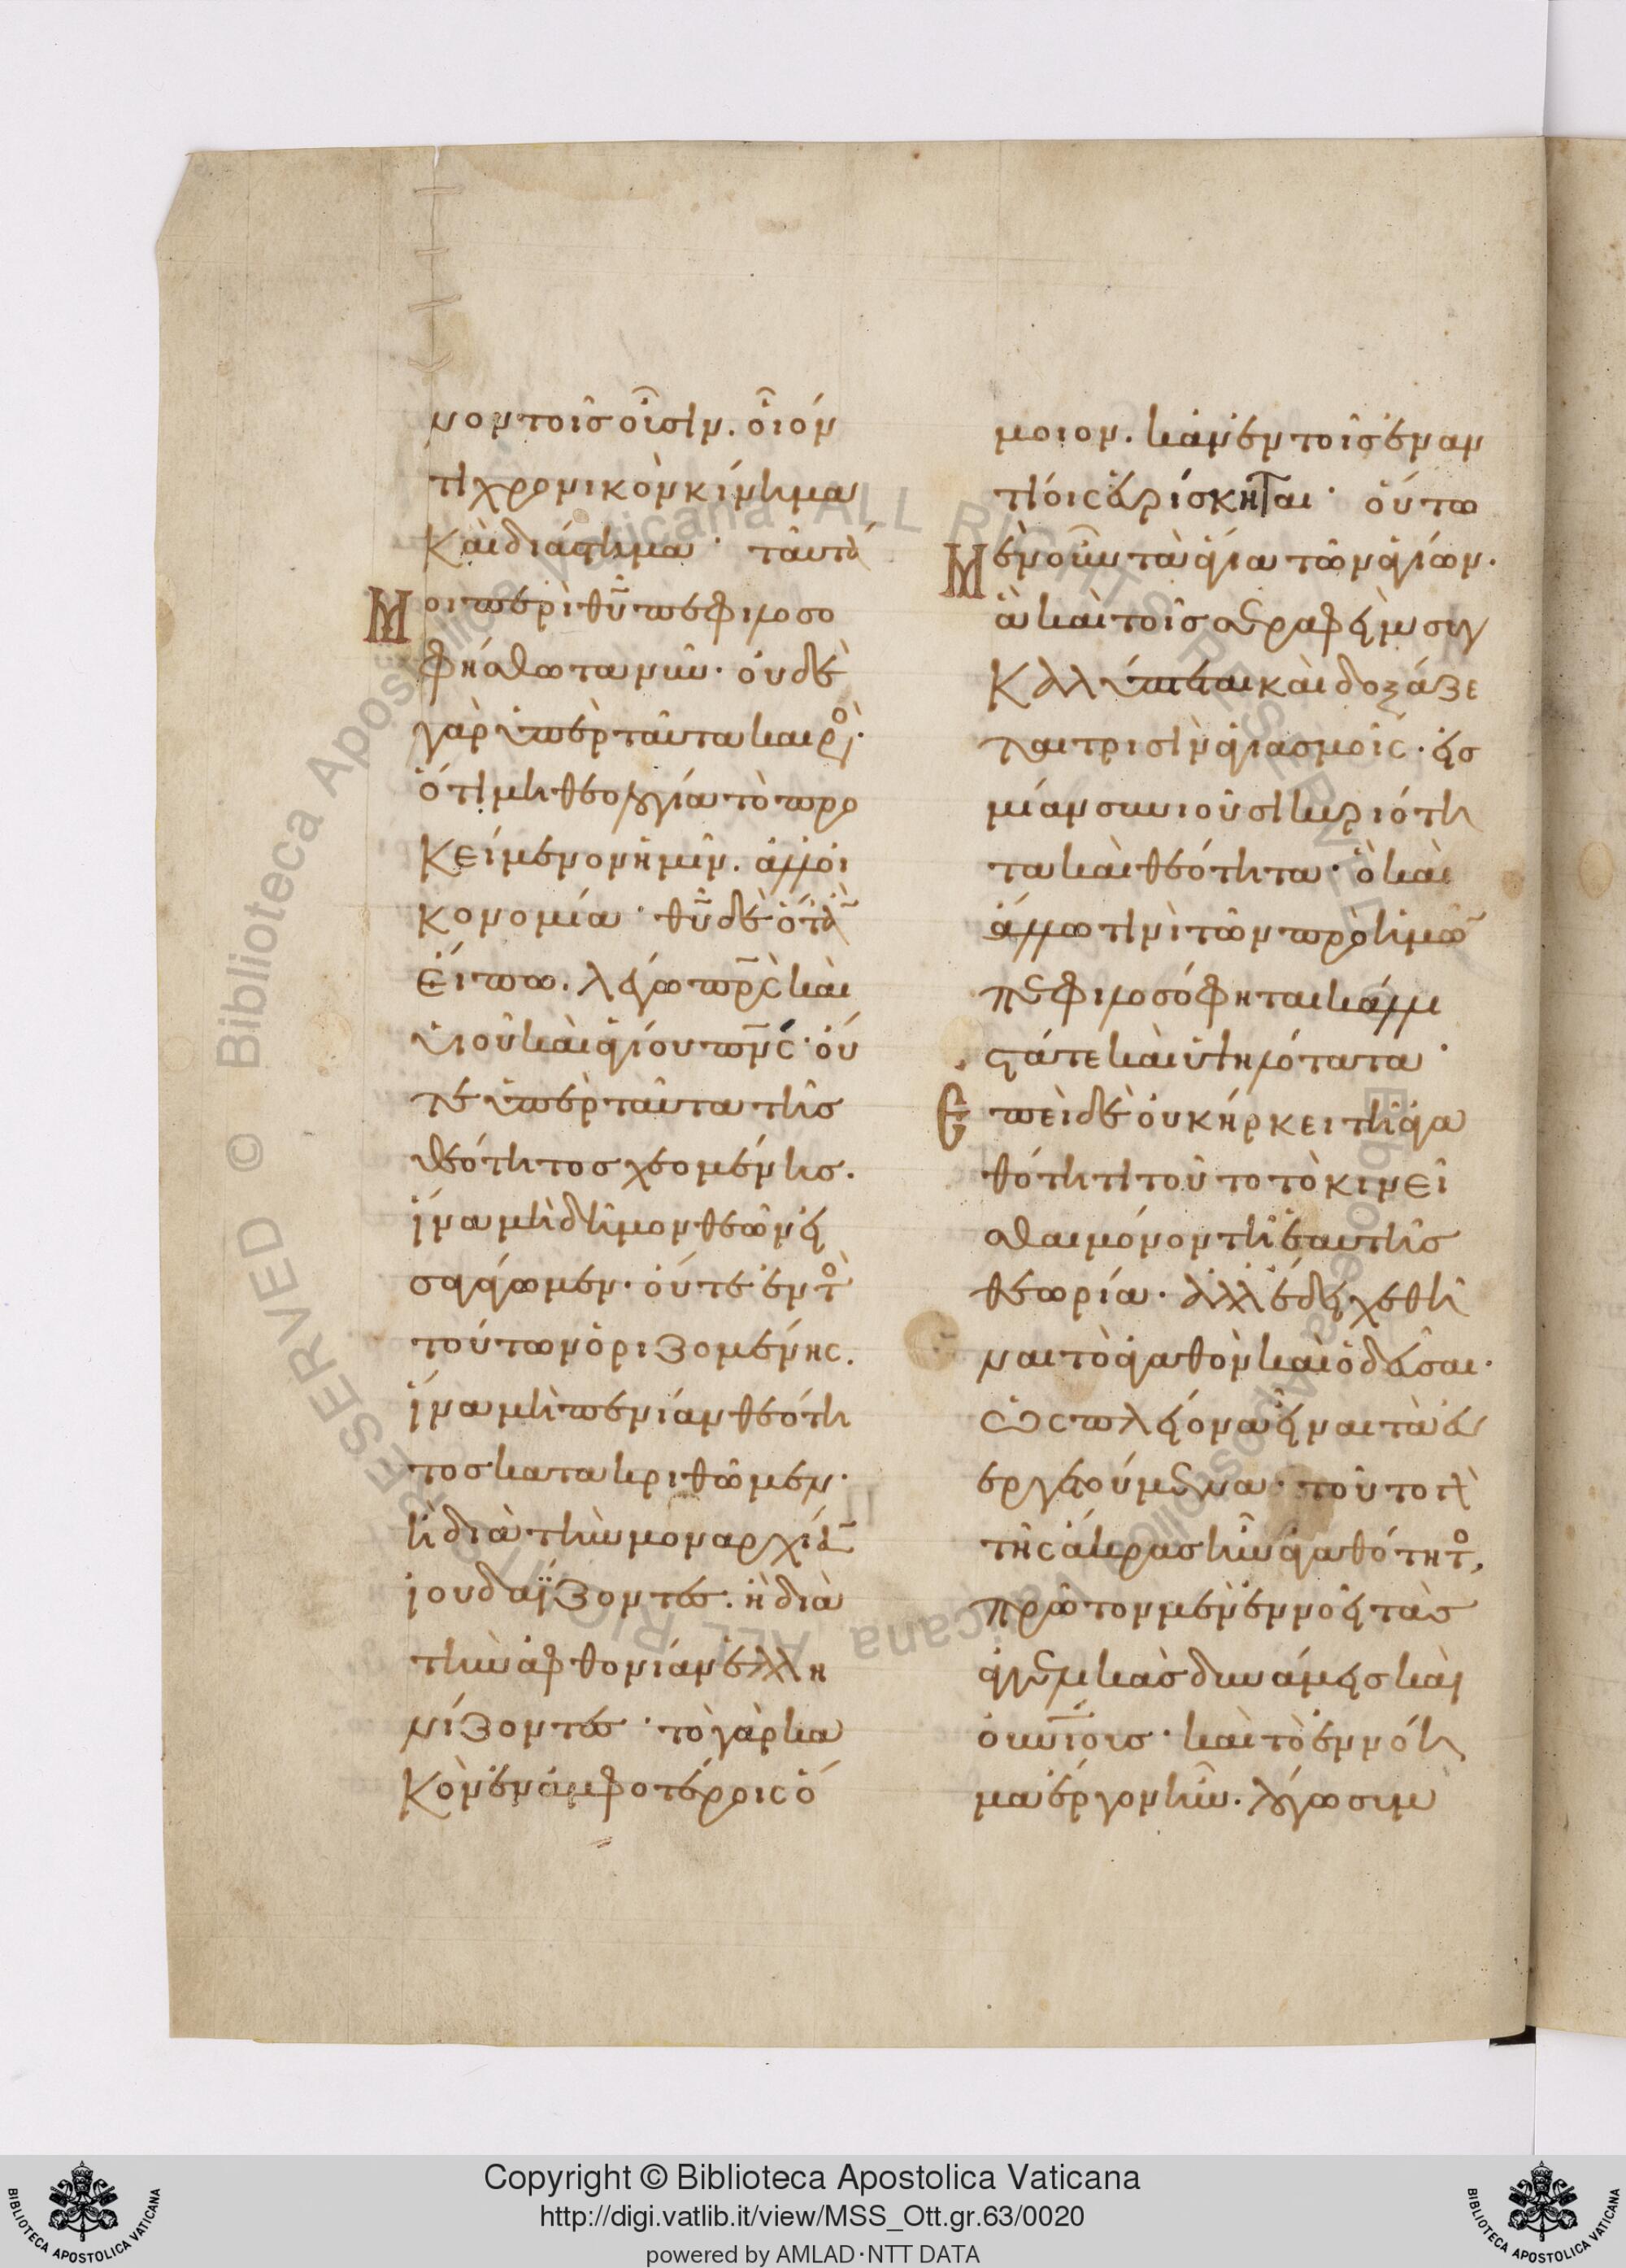 νον τοῖς οὖσιν. οἷόν
τι χρονικὸν κίνημα
καὶ διάστημα· ταῦτά
μοι περὶ θῦ πεφιλοσο
φήσθω τανῦν· οὐδὲ
γὰρ ὑπὲρ ταῦτα καιρός·
ὅτι μὴ θεολογία τὸ προ
κείμενον ἡμῖν. ἀλλ' οἰ
κονομία· θῦ δὲ ὅταν
εἴπω. λέγω πρς καὶ
υἱοῦ καὶ ἁγίου πνς· οὔ
τε ὑπὲρ ταῦτα τῆς
θεότητος χεομένης.
ἵνα μὴ δῆμον θεῶν εἰ
σαγάγωμεν. οὔτε ἐντὸς
τούτων ὁριζομένης.
ἵνα μὴ πενίαν θεότη
τος κατακριθῶμεν·
ἢ διὰ τὴν μοναρχίαν
ἰουδαΐζοντες. ἢ διὰ
τὴν ἀφθονίαν ἑλλη
νίζοντες· τὸ γὰρ κα
κὸν ἐν ἀμφοτέροις ὅ
μοιον. κἂν ἐν τοῖς ἐναν
τίοις εὑρίσκηται· οὕτω
μὲν οὖν τὰ ἅγια τῶν ἁγίων.
ἃ καὶ τοῖς σεραφεὶμ συγ
καλύπτεται καὶ δοξάζε
ται τρισὶν ἁγιασμοῖς. εἰς
μίαν συνιοῦσι κυριότη
τα καὶ θεότητα· ὃ καὶ
ἄλλω τινὶ τῶν πρὸ ἡμῶν
πεφιλοσόφηται κάλλι
στά τε καὶ ὑψηλότατα·
ἐπεὶ δὲ οὐκ ἤρκει τῆ ἀγα
θότητι τοῦτο τὸ κινεῖ
σθαι μόνον τῆ ἑαυτῆς
θεωρία. ἀλλ' ἔδει χεθῆ
ναι τὸ ἀγαθὸν καὶ ὁδεῦσαι.
ὡς πλείονα εἶναι τὰ εὐ
εργετούμενα· τοῦτο γὰρ
τῆς ἄκρας ἦν ἀγαθότητος,
πρῶτον μὲν ἐννοεῖ τὰς
ἀγγελικὰς δυνάμεις καὶ
οὐνίους· καὶ τὸ ἐννόη
μα ἔργον ἦν. λόγω συμ
Copyright © Biblioteca Apostolica Vaticana
http://digi.vatlib.it/view/MSS_Ott.gr.63/0020
powered by AMLAD·NTT DATA